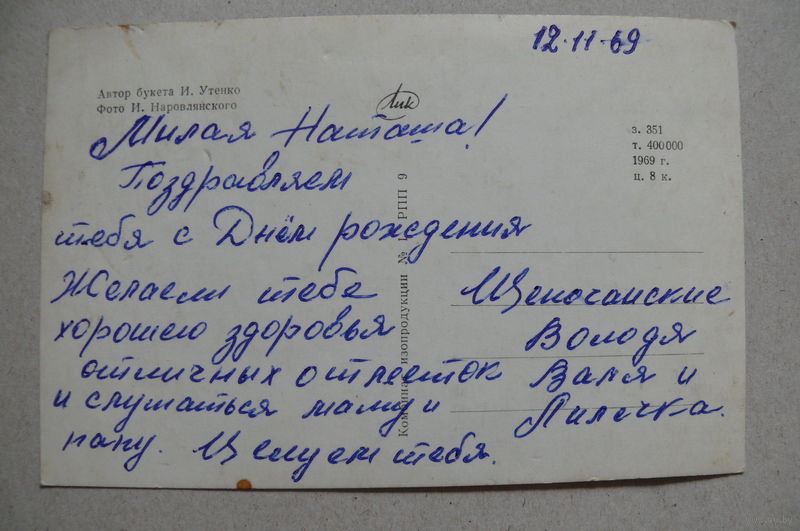 12.11.69
Автор букета И. Утенко
Фото И. Наровлянского
з. 351
т. 400000
1969 г.
ц. 8 к.
Милая Наташа!
Поздравляем
тебя с Днём рождения
Желаем тебе
хорошего здоровья
отличных отметок
и слушаться маму и
папу. Целуем тебя.
Володя
Валя и
Лилечка.
изопродукции № РПП 9